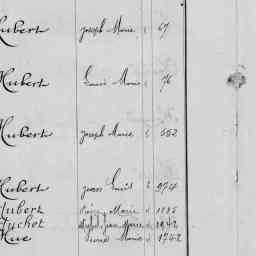 Hubert Joseph Marie 67
Hubert Louis Marie 76
Hubert Joseph Marie 552
Hubert Jean Louis 974
Hubert Pierre Marie 1185
Huchet Jean Marie 1942
Hue Pierre Marie 1742